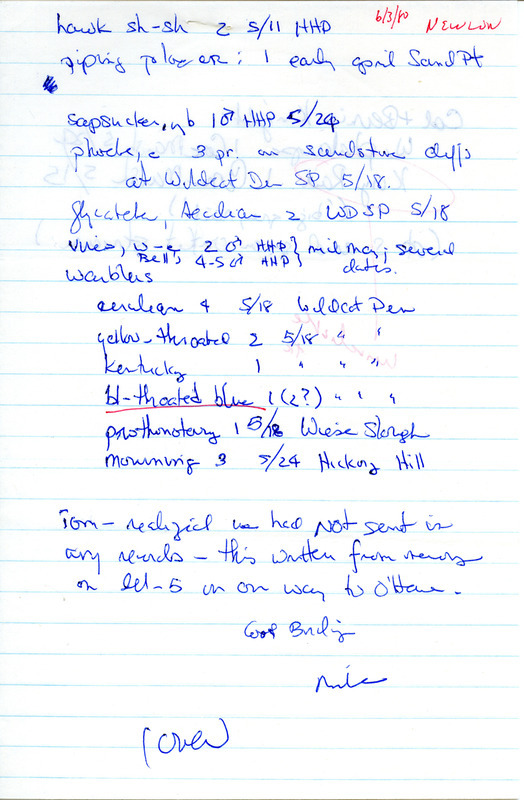 6/3/80 NEWLON
hawk sh-sh 2 5/11 HHP
piping plover: 1 early april Sand Pt
sapsucker, yb 1♂ HHP 5/24
phoebe, e 3 pr. on sandstone cliffs
at Wildcat Den SP 5/18.
flycatcher, Acadian 2 WDSP 5/18
vireo, w-e 2♂ HHP } mid may; several
Bell's 4-5♂ HHP } dates.
warblers
cerulean 4 5/18 Wildcat Den
yellow-throated 2 5/18 " "
Kentucky 1 " " "
bl-throated blue 1 (2?) " " "
prothonotary 1 5/18 Wiese Slough
mourning 3 5/24 Hickory Hill
Tom - realized we had NOT sent in
any records - this written from memory
on way to
Good Birding
Mike
(over)